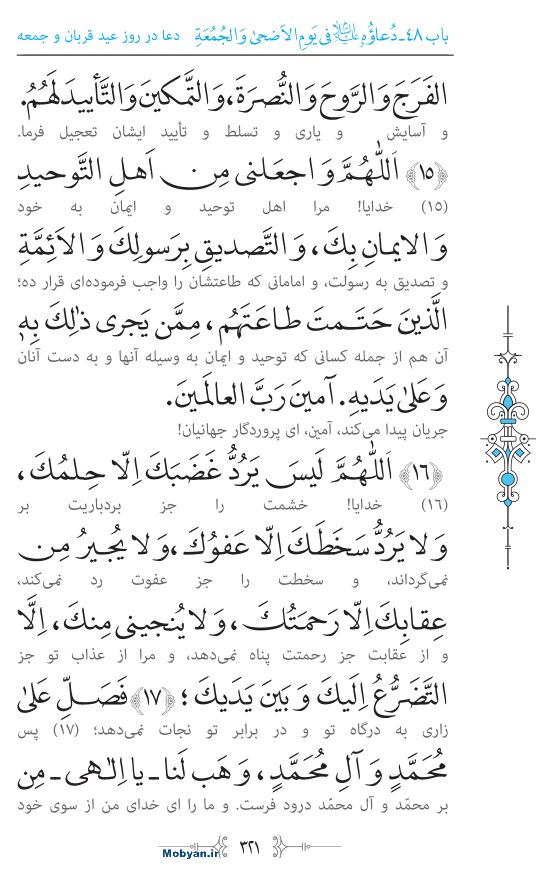 باب ۴۸ـ دُعاؤُهُ علیه‌السلام فی یَومِ الاَضحیٰ وَالجُمُعَةِ دعا در روز عید قربان و جمعه
الفَرَجَ وَالرَّوحَ وَالنُّصرَةَ، وَالتَّمکینَ وَالتَّأییدَ لَهُم.
و آسایش و یاری و تسلط و تأیید ایشان تعجیل فرما.
﴿۱۵﴾ اَللّٰهُمَّ وَ اجعَلنی مِن اَهلِ التَّوحیدِ
(۱۵) خدایا! مرا اهل توحید و ایمان به خود
وَ الایمانِ بِكَ، وَ التَّصدیقِ بِرَسولِكَ وَ الاَئِمَّةِ
و تصدیق به رسولت، و امامانی که طاعتشان را واجب فرموده‌ای قرار ده؛
الَّذینَ حَتَمتَ طاعَتَهُم، مِمَّن یَجری ذٰلِكَ بِهٖ
آن هم از جمله کسانی که توحید و ایمان به وسیله آنها و به دست آنان
وَ عَلیٰ یَدَیهِ. آمینَ رَبَّ العالَمینَ.
جریان پیدا می‌کند، آمین، ای پروردگار جهانیان!
﴿۱۶﴾ اَللّٰهُمَّ لَیسَ یَرُدُّ غَضَبَكَ اِلّا حِلمُكَ،
(۱۶) خدایا! خشمت را جز بردباریت بر
وَ لا یَرُدُّ سَخَطَكَ اِلّا عَفوُكَ، وَ لا یُجیرُ مِن
نمی‌گرداند، و سخطت را جز عفوت رد نمی‌کند،
عِقابِكَ اِلّا رَحمَتُكَ، وَ لا یُنجینی مِنكَ، اِلَّا
و از عقابت جز رحمتت پناه نمی‌دهد، و مرا از عذاب تو جز
التَّضَرُّعُ اِلَیكَ وَ بَینَ یَدَیكَ؛ ﴿۱۷﴾ فَصَلِّ عَلیٰ
زاری به درگاه تو و در برابر تو نجات نمی‌دهد؛ (۱۷) پس
مُحَمَّدٍ وَ آلِ مُحَمَّدٍ، وَ هَب لَنا ـ یا اِلٰهی ـ مِن
بر محمّد و آل محمّد درود فرست. و ما را ای خدای من از سوی خود
۳۲۱
Mobyan.ir